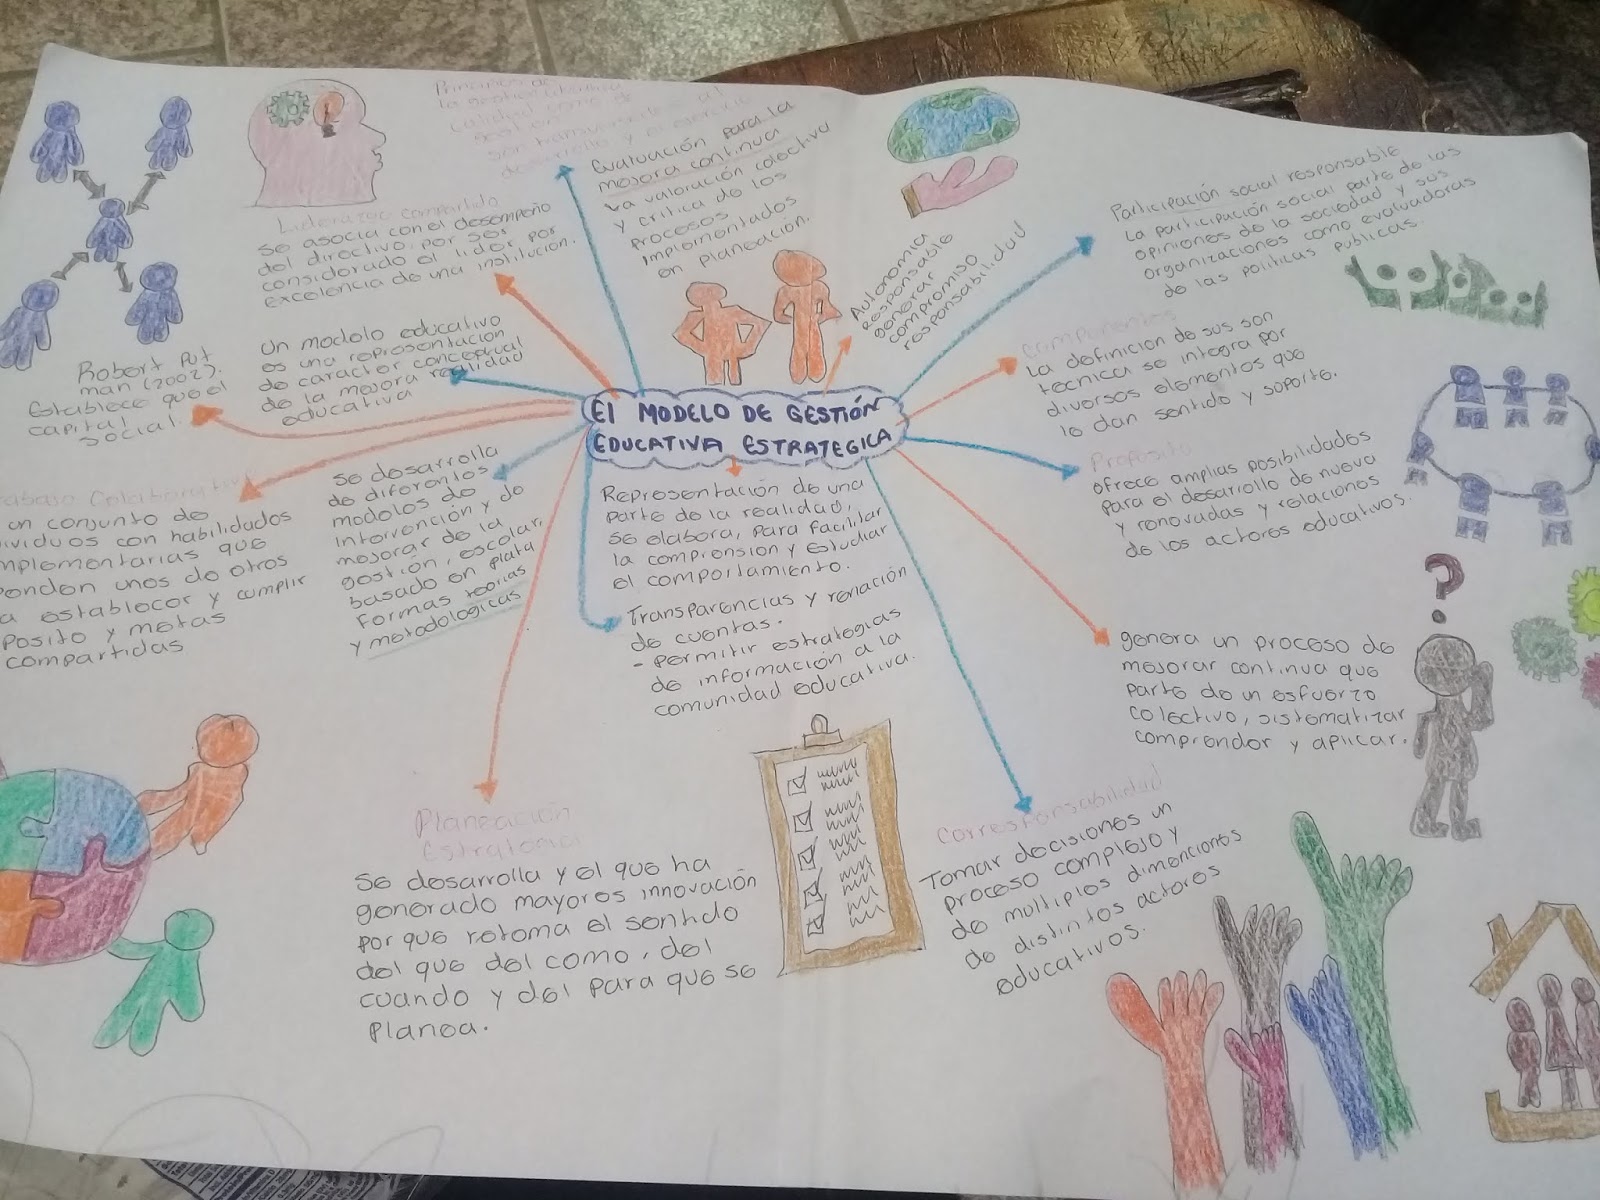 El MODELO DE GESTIÓN
EDUCATIVA ESTRATEGICA
Principios de
la gestión educativa
calidad como de
gestión
son transversales al
desarrollo y
Evaluación para la
mejora continua
La valoración colectiva
y critica de los
Procesos
Implementados
en planeación.
Autonomia
Responsable
generar
compromiso
responsabilidad
Participación social responsable
La participación social parte de las
opiniones de la sociedad y sus
organizaciones como evaluadoras
de las politicas publicas.
Componentes
La definicion de sus son
tecnica se integra por
diversos elementos que
lo dan sentido y soporte.
Proposito
ofrece amplias posibilidades
para el desarrollo de nueva
y renovadas y relaciones
de los actores educativos.
?
genera un proceso de
mejorar continua que
parte de un esfuerzo
colectivo, sistematizar
comprender y aplicar.
Corresponsabilidad
Tomar decisiones un
proceso complejo y
de multiples dimenciones
de distintos actores
educativos.
Representación de una
parte de la realidad,
se elabora, para facilitar
la comprension y estudiar
el comportamiento.
Transparencias y renación
de cuentas.
- permitir estrategias
de información a la
comunidad educativa.
Planeación
Estrategica
Se desarrolla y el que ha
generado mayores innovación
por que retoma el sentido
del que del como, del
cuando y del para que se
planea.
Se desarrolla
de diferentes
modelos de
intervención y de
mejorar de la
gestión, escolar,
basado en plata
Formas teorias
y metodologicas
Trabajo Colaborativo
un conjunto de
individuos con habilidades
complementarias que
dependen unos de otros
establecer y cumplir
proposito y metas
compartidas
Robert Put
man (2002).
Establece que el
capital
social.
Un modelo educativo
es una representacion
de caracter conceptual
de la mejora realidad
educativa
Liderazgo compartido
se asocia con el desempeño
del directivo, por ser
considerado el lider por
excelencia de una institucion.